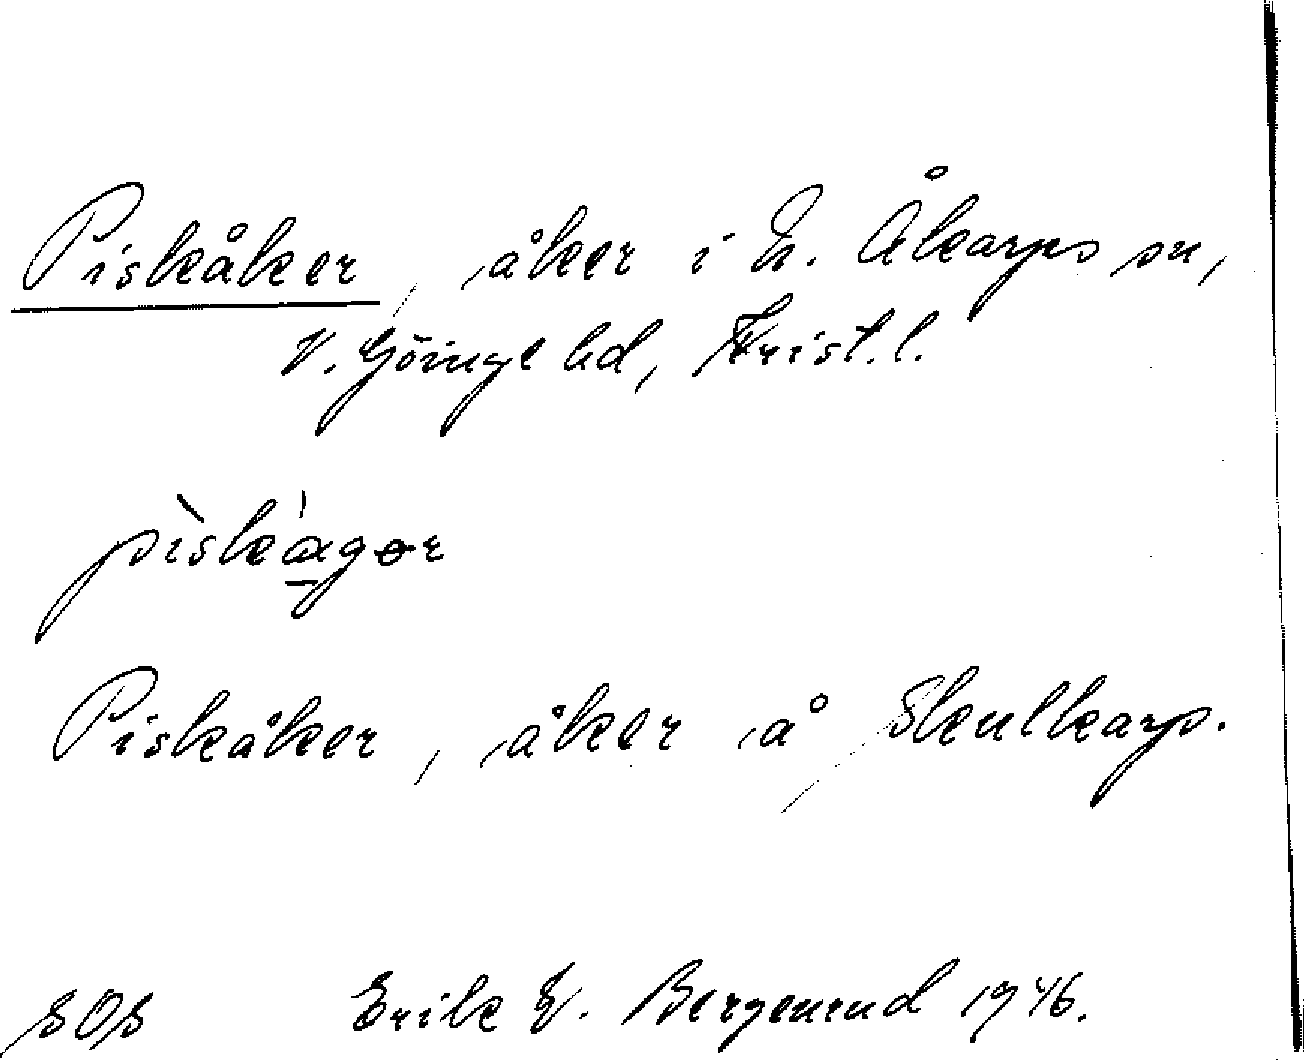 Piskåker, åker i N. Åkarps sn,
V. Göinge hd, Krist. l.
pìskágər
Piskåker, åker å Skulkarp.
SOS Erik V. Bergenrud 1946.